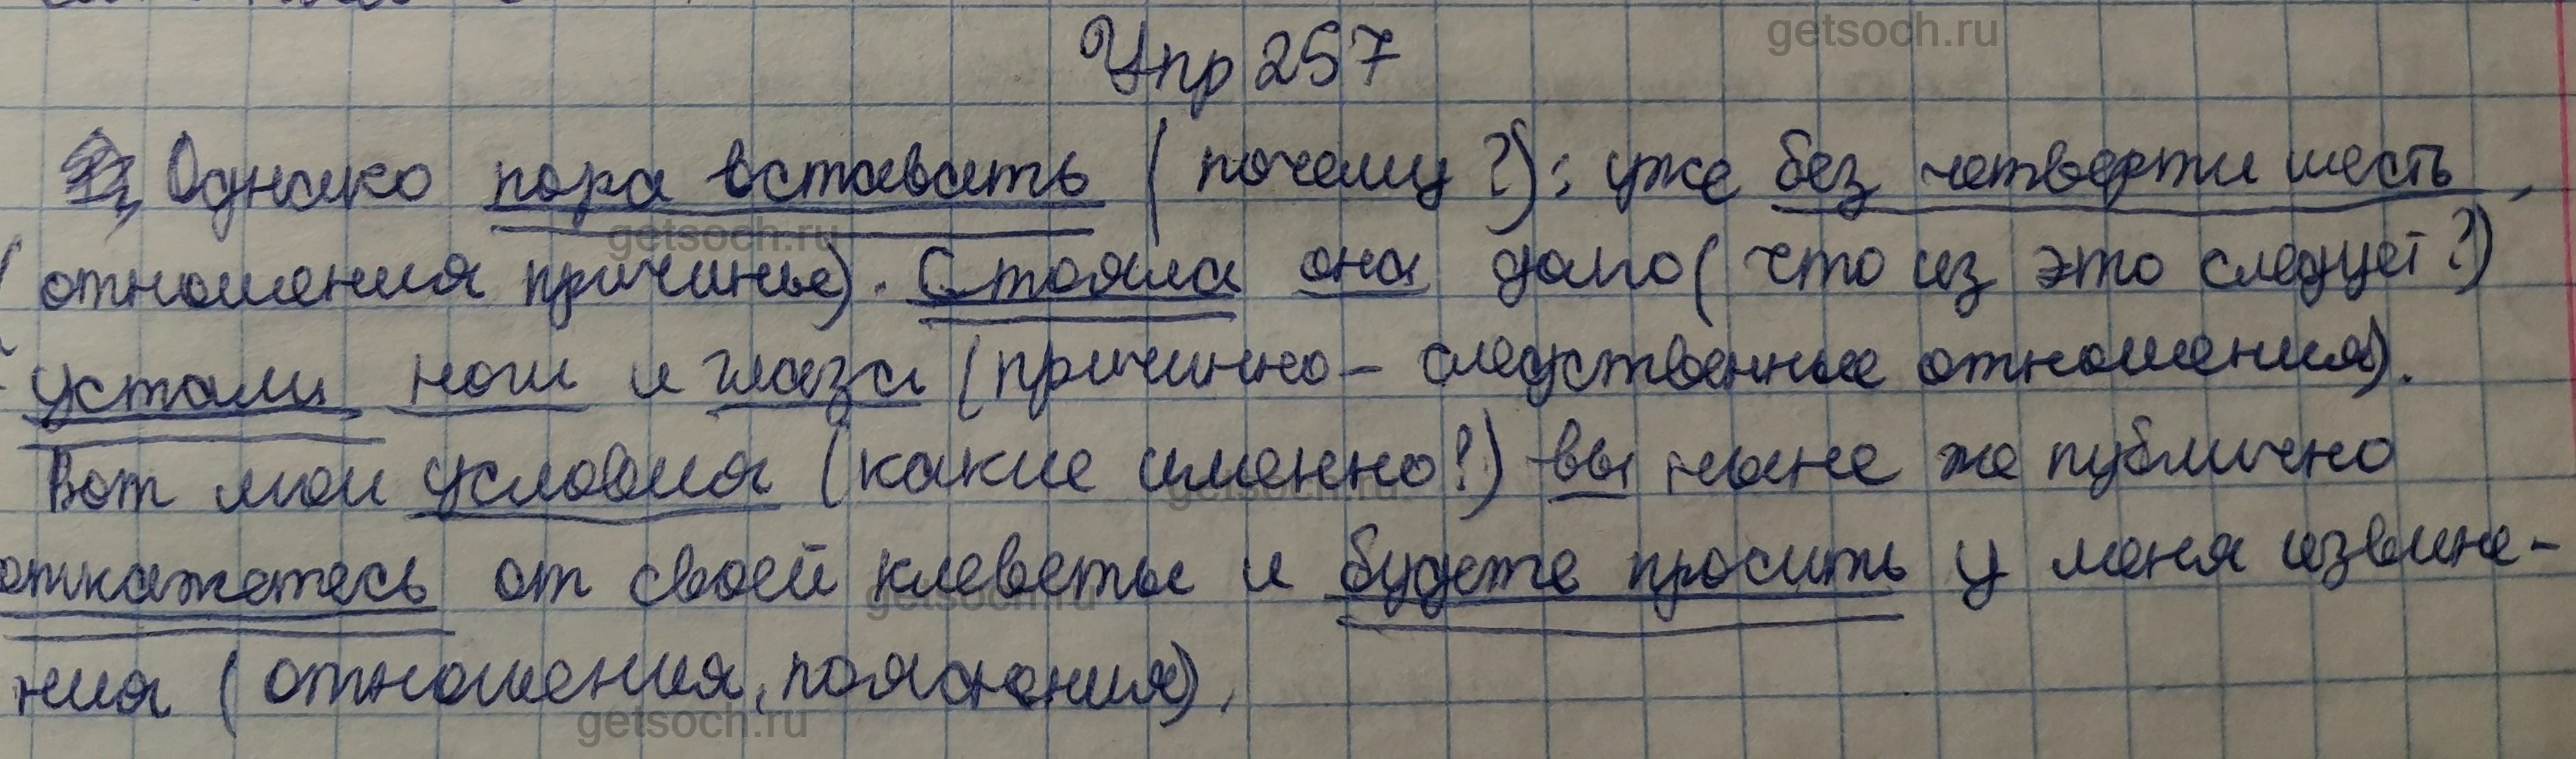 getsoch.ru
Упр 257
Однако пора вставать (почему?): уже без четверти шесть,
getsoch.ru
(отношения причины). Стояла она долго (что из это следует?)
устали ноги и глаза (причинно-следственные отношения).
Вот мои условия (какие именно?) вы ныне же публично
getsoch.ru
откажетесь от своей клеветы и будете просить у меня извине-
getsoch.ru
ния (отношения, пояснения).
getsoch.ru